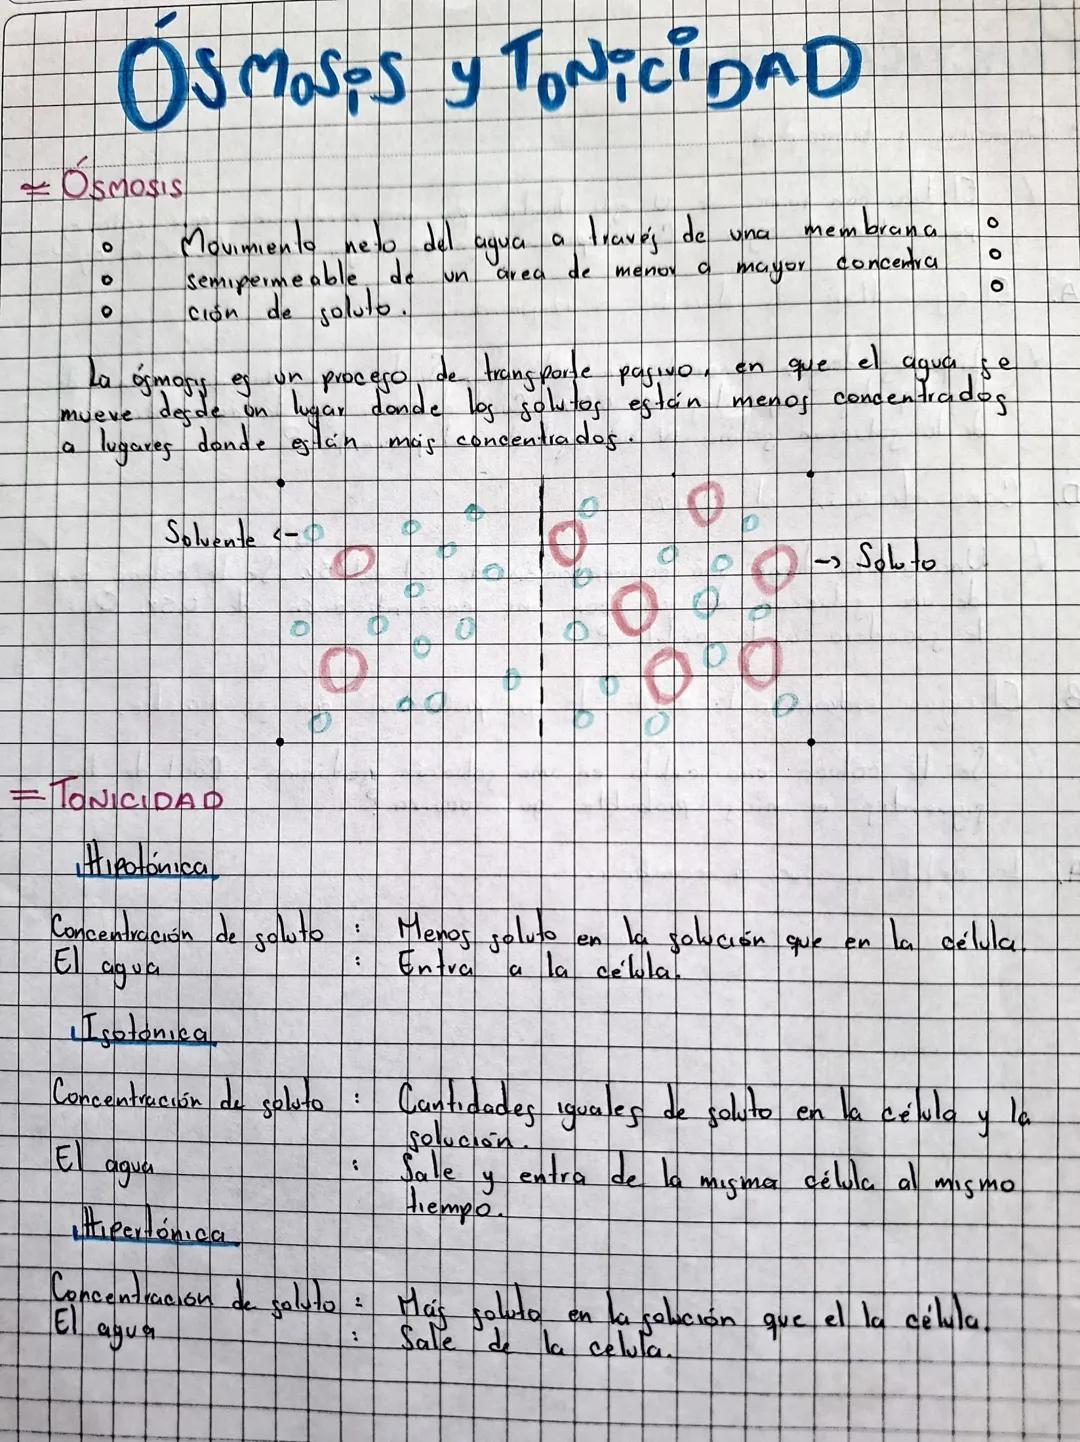 ÓSMOSIS y TONICIDAD
= ÓSMOSIS
Movimiento neto del agua a través de una membrana
semipermeable, de un área de menor a mayor concentra
ción de soluto.
La ósmosis es un proceso de transporte pasivo, en que el agua se
mueve desde un lugar donde los solutos están menos condentrados
a lugares donde están más concentrados.
Solvente <-
-> Soluto
= TONICIDAD
Hipotónica
Concentración de soluto : Menos soluto en la solución que en la célula.
El agua : Entra a la célula.
Isotónica
Concentración de soluto : Cantidades iguales de soluto en la célula y la
solución.
El agua : Sale y entra de la misma célula al mismo
tiempo.
Hipertónica
Concentracion de soluto : Más soluto en la solución que el la célula.
El agua : Sale de la celula.